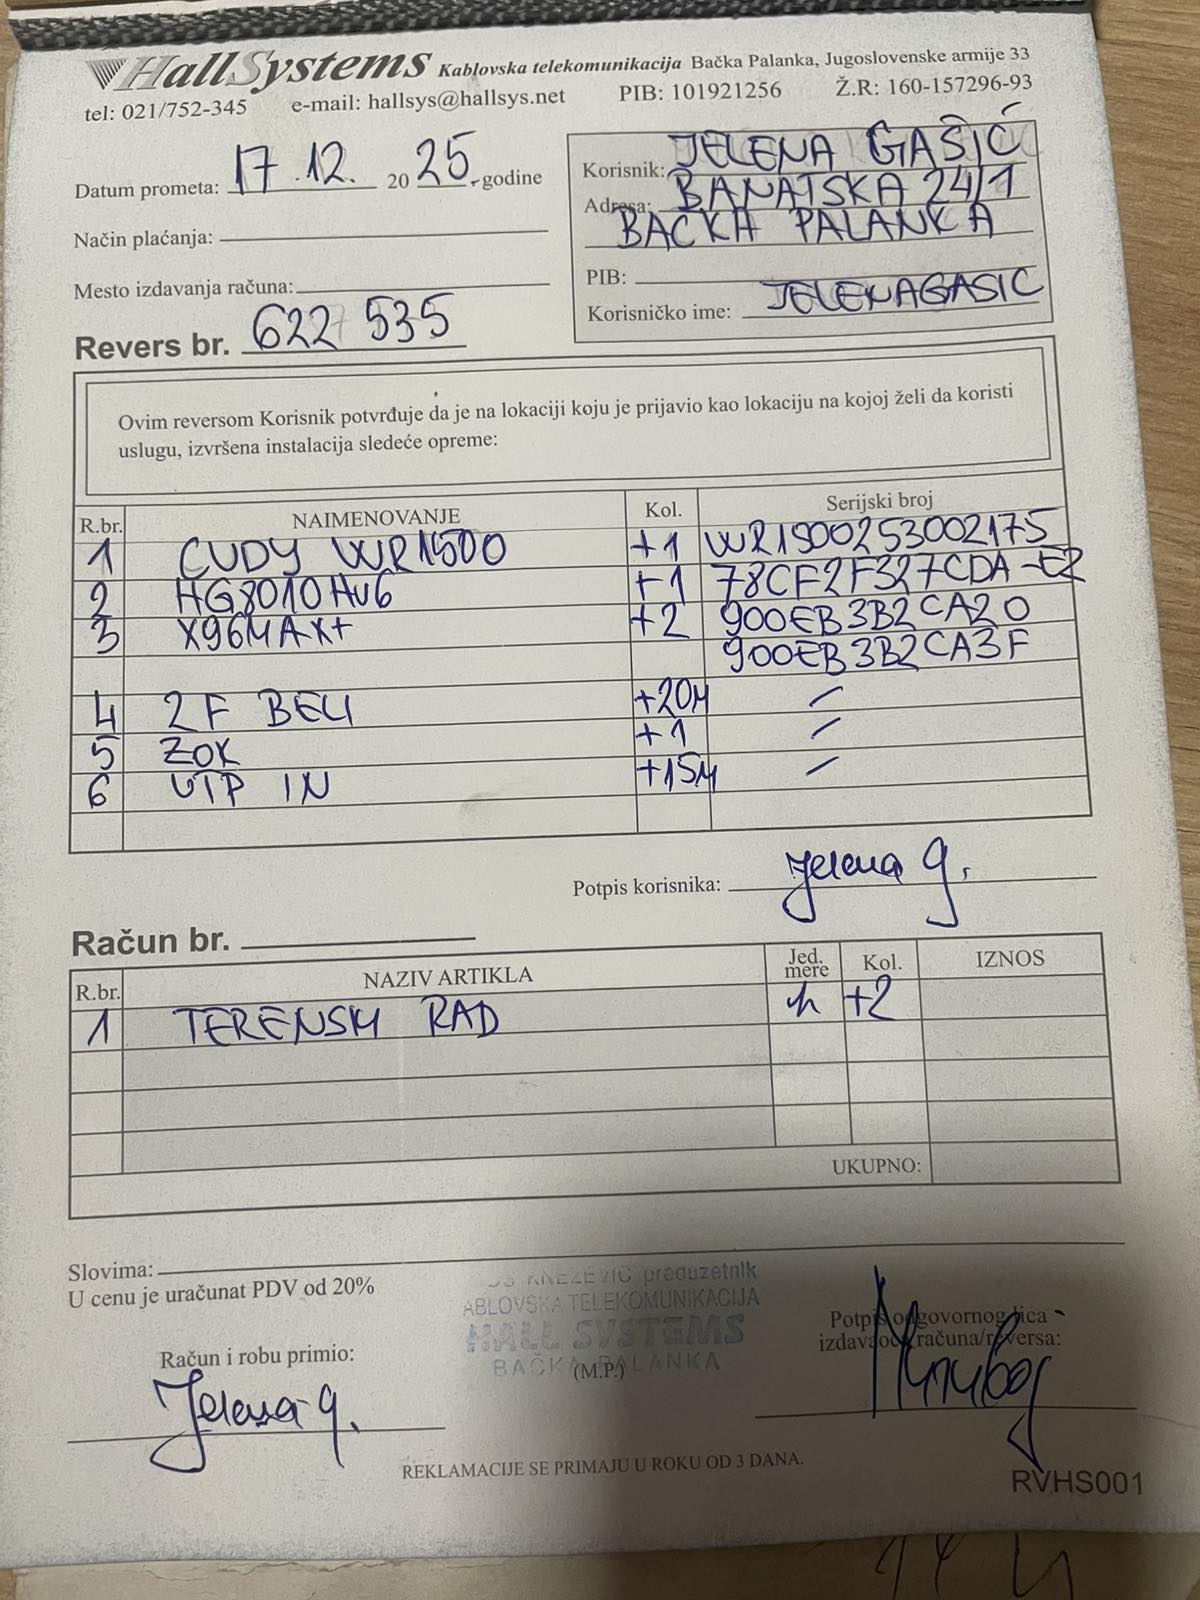 HallSystems Kablovska telekomunikacija Bačka Palanka, Jugoslovenske armije 33
tel: 021/752-345 e-mail: hallsys@hallsys.net PIB: 101921256 Ž.R: 160-157296-93
Datum prometa: 17.12. 2025. godine
Način plaćanja:
Mesto izdavanja računa:
Revers br. 622 535
Korisnik: JELENA GAŠIĆ
Adresa: BANATSKA 24/1
BACKA PALANKA
PIB:
Korisničko ime: JELENAGASIC
Ovim reversom Korisnik potvrđuje da je na lokaciji koju je prijavio kao lokaciju na kojoj želi da koristi
uslugu, izvršena instalacija sledeće opreme:
R.br. NAIMENOVANJE Kol. Serijski broj
1 CUDY WR1500 +1 WR1500253002175
2 HG8010Hv6 +1 78CF2F327CDA-E2
3 X96MAX+ +2 900EB3B2CA20
900EB3B2CA3F
4 2F BELI +20M /
5 ZOK +1 /
6 UTP IN +15M /
Potpis korisnika: Jelena G.
Račun br.
R.br. NAZIV ARTIKLA Jed. mere Kol. IZNOS
1 TERENSKI RAD h +2
UKUPNO:
Slovima:
U cenu je uračunat PDV od 20%
KNEŽEVIĆ preduzetnik
ABLOVSKA TELEKOMUNIKACIJA
HALL SYSTEMS
BAČKA PALANKA
(M.P.)
Račun i robu primio:
Jelena G.
Potpis odgovornog lica
izdavaoca računa/reversa:
REKLAMACIJE SE PRIMAJU U ROKU OD 3 DANA.
RVHS001